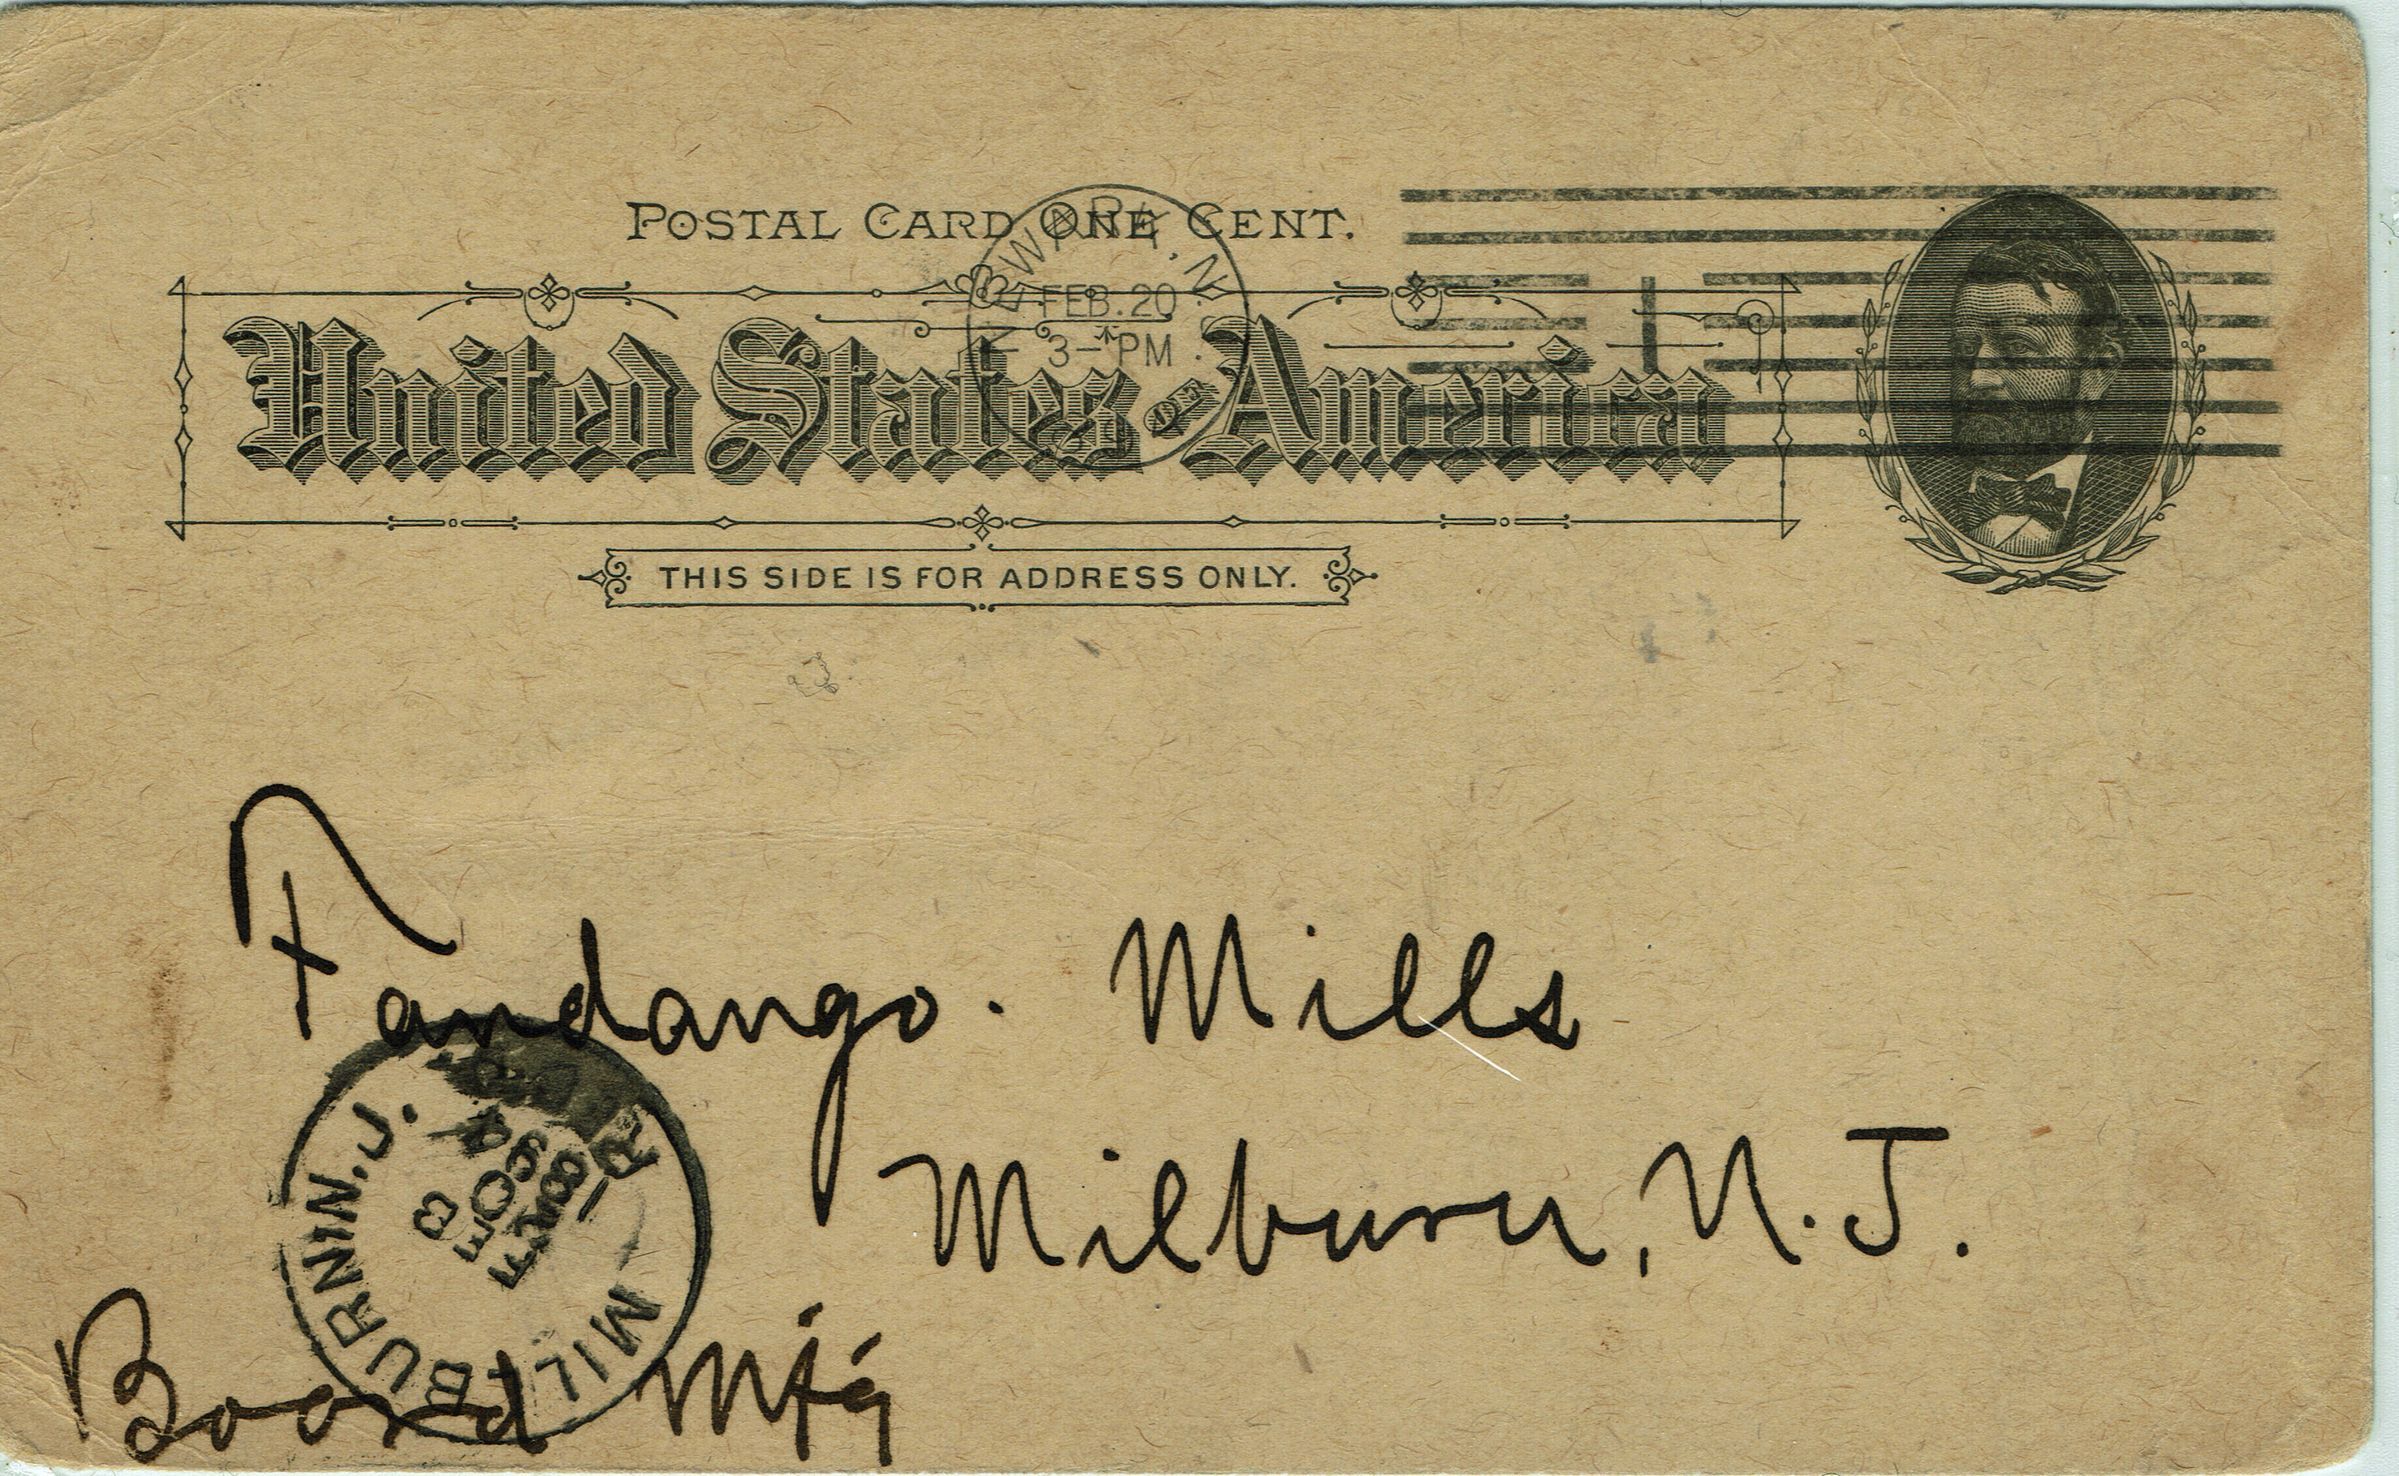 POSTAL CARD ONE CENT.
NEWARK, N.J.
FEB. 20
3-PM
United States of America
THIS SIDE IS FOR ADDRESS ONLY.
Fandango. Mills
Milburn, N.J.
Board Mfg
MILLBURN N.J.
FEB